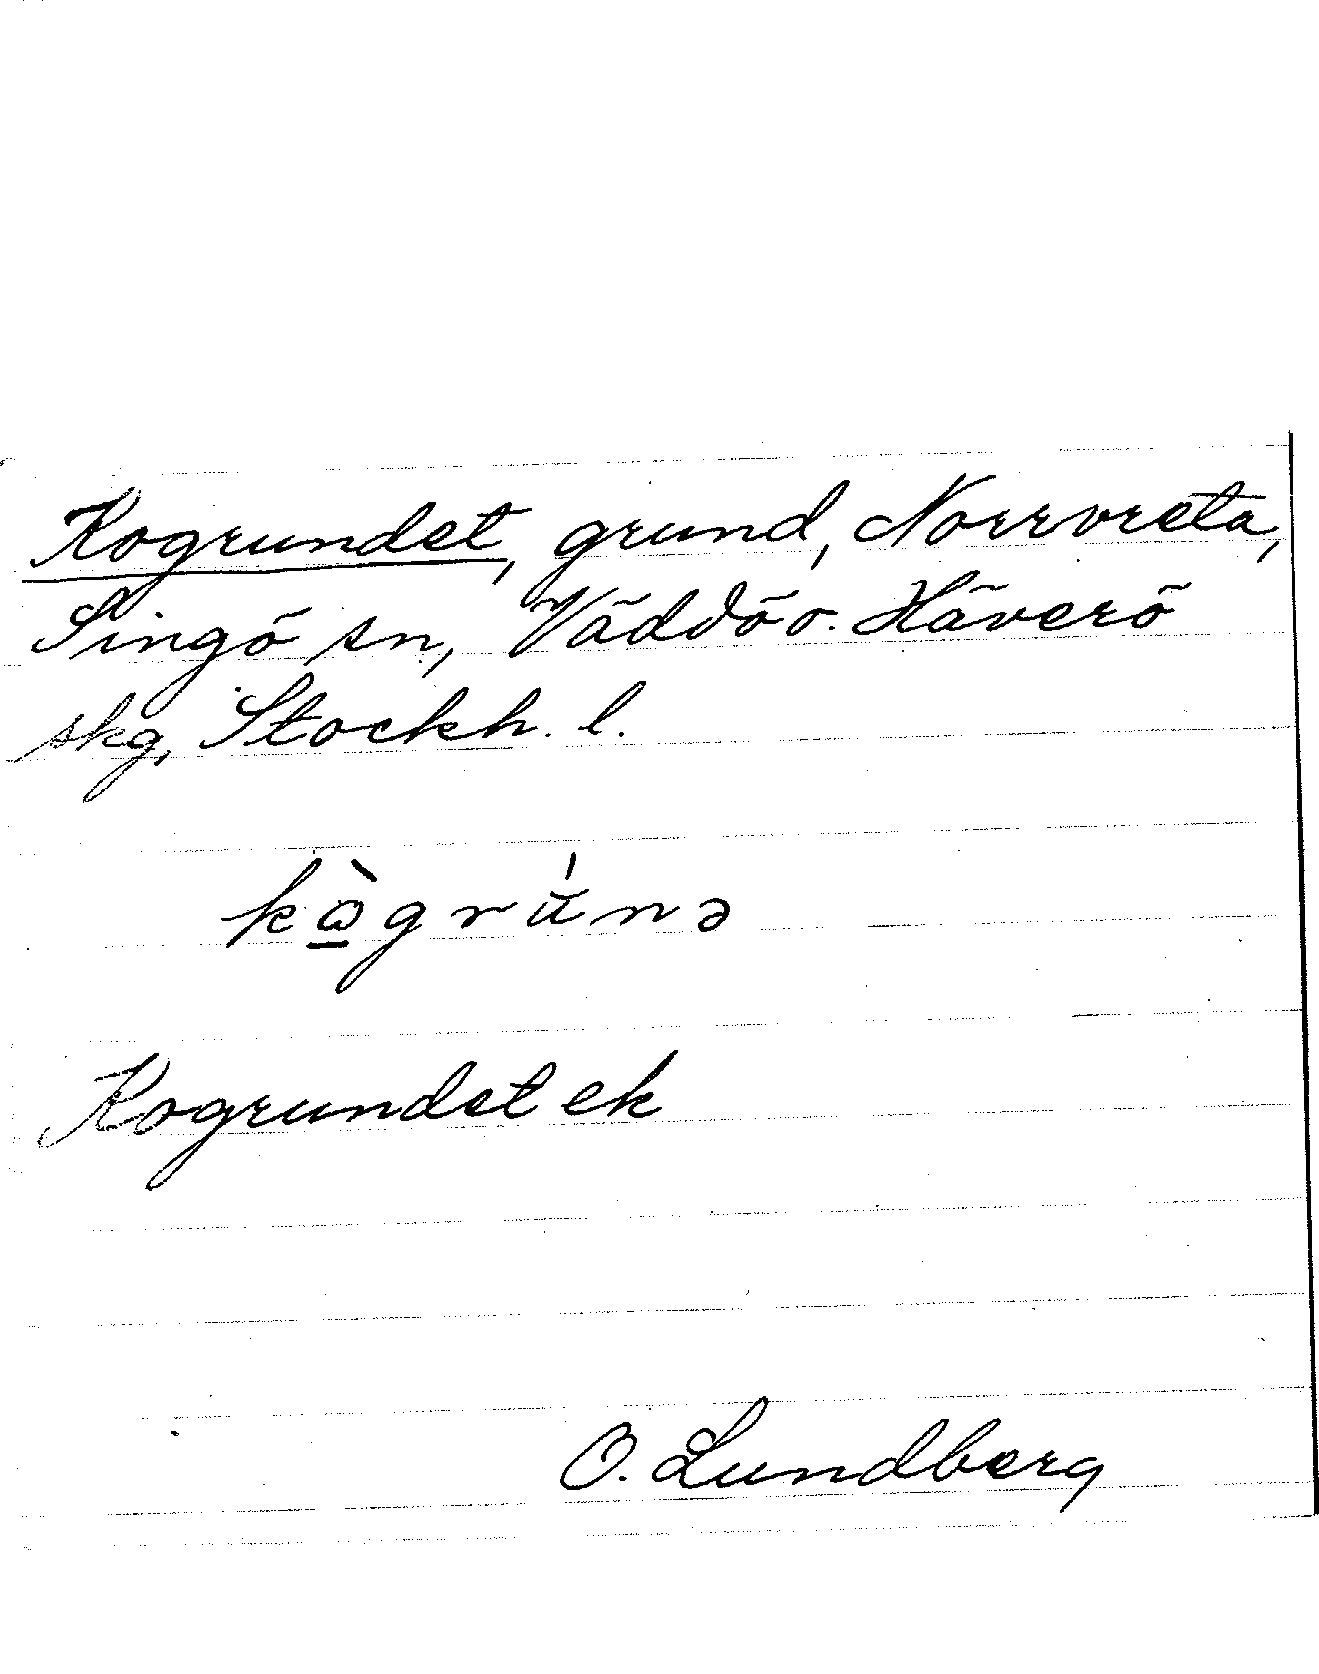 Kogrundet, grund, Norrvreta,
Singö sn, Väddö o. Häverö
skg, Stockh. l.
kὼ̲grú̆nə
Kogrundet ek
O. Lundberg